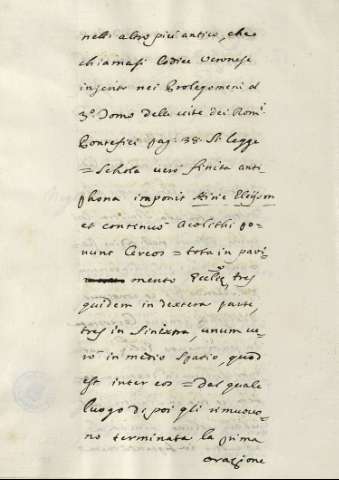 nell altro più antico, che
chiamasi Codice Veronese
inserito nei Prolegomeni al
3.º Tomo delle vite dei Rom.ⁱ
Pontefici pag: 38: Si legge
= Schola vero finita anti-
phona imponit Kirie Eleison
et continuò Acolithi po-
nunt Cereos = tota in pavi-
mento Ecclię, tres
quidem in dextera parte,
tres in Sinixtra, unum ve-
rò in medio Spatio, quod
est inter eos = dal quale
luogo di poi gli rimuovo-
no terminata la prima
orazione